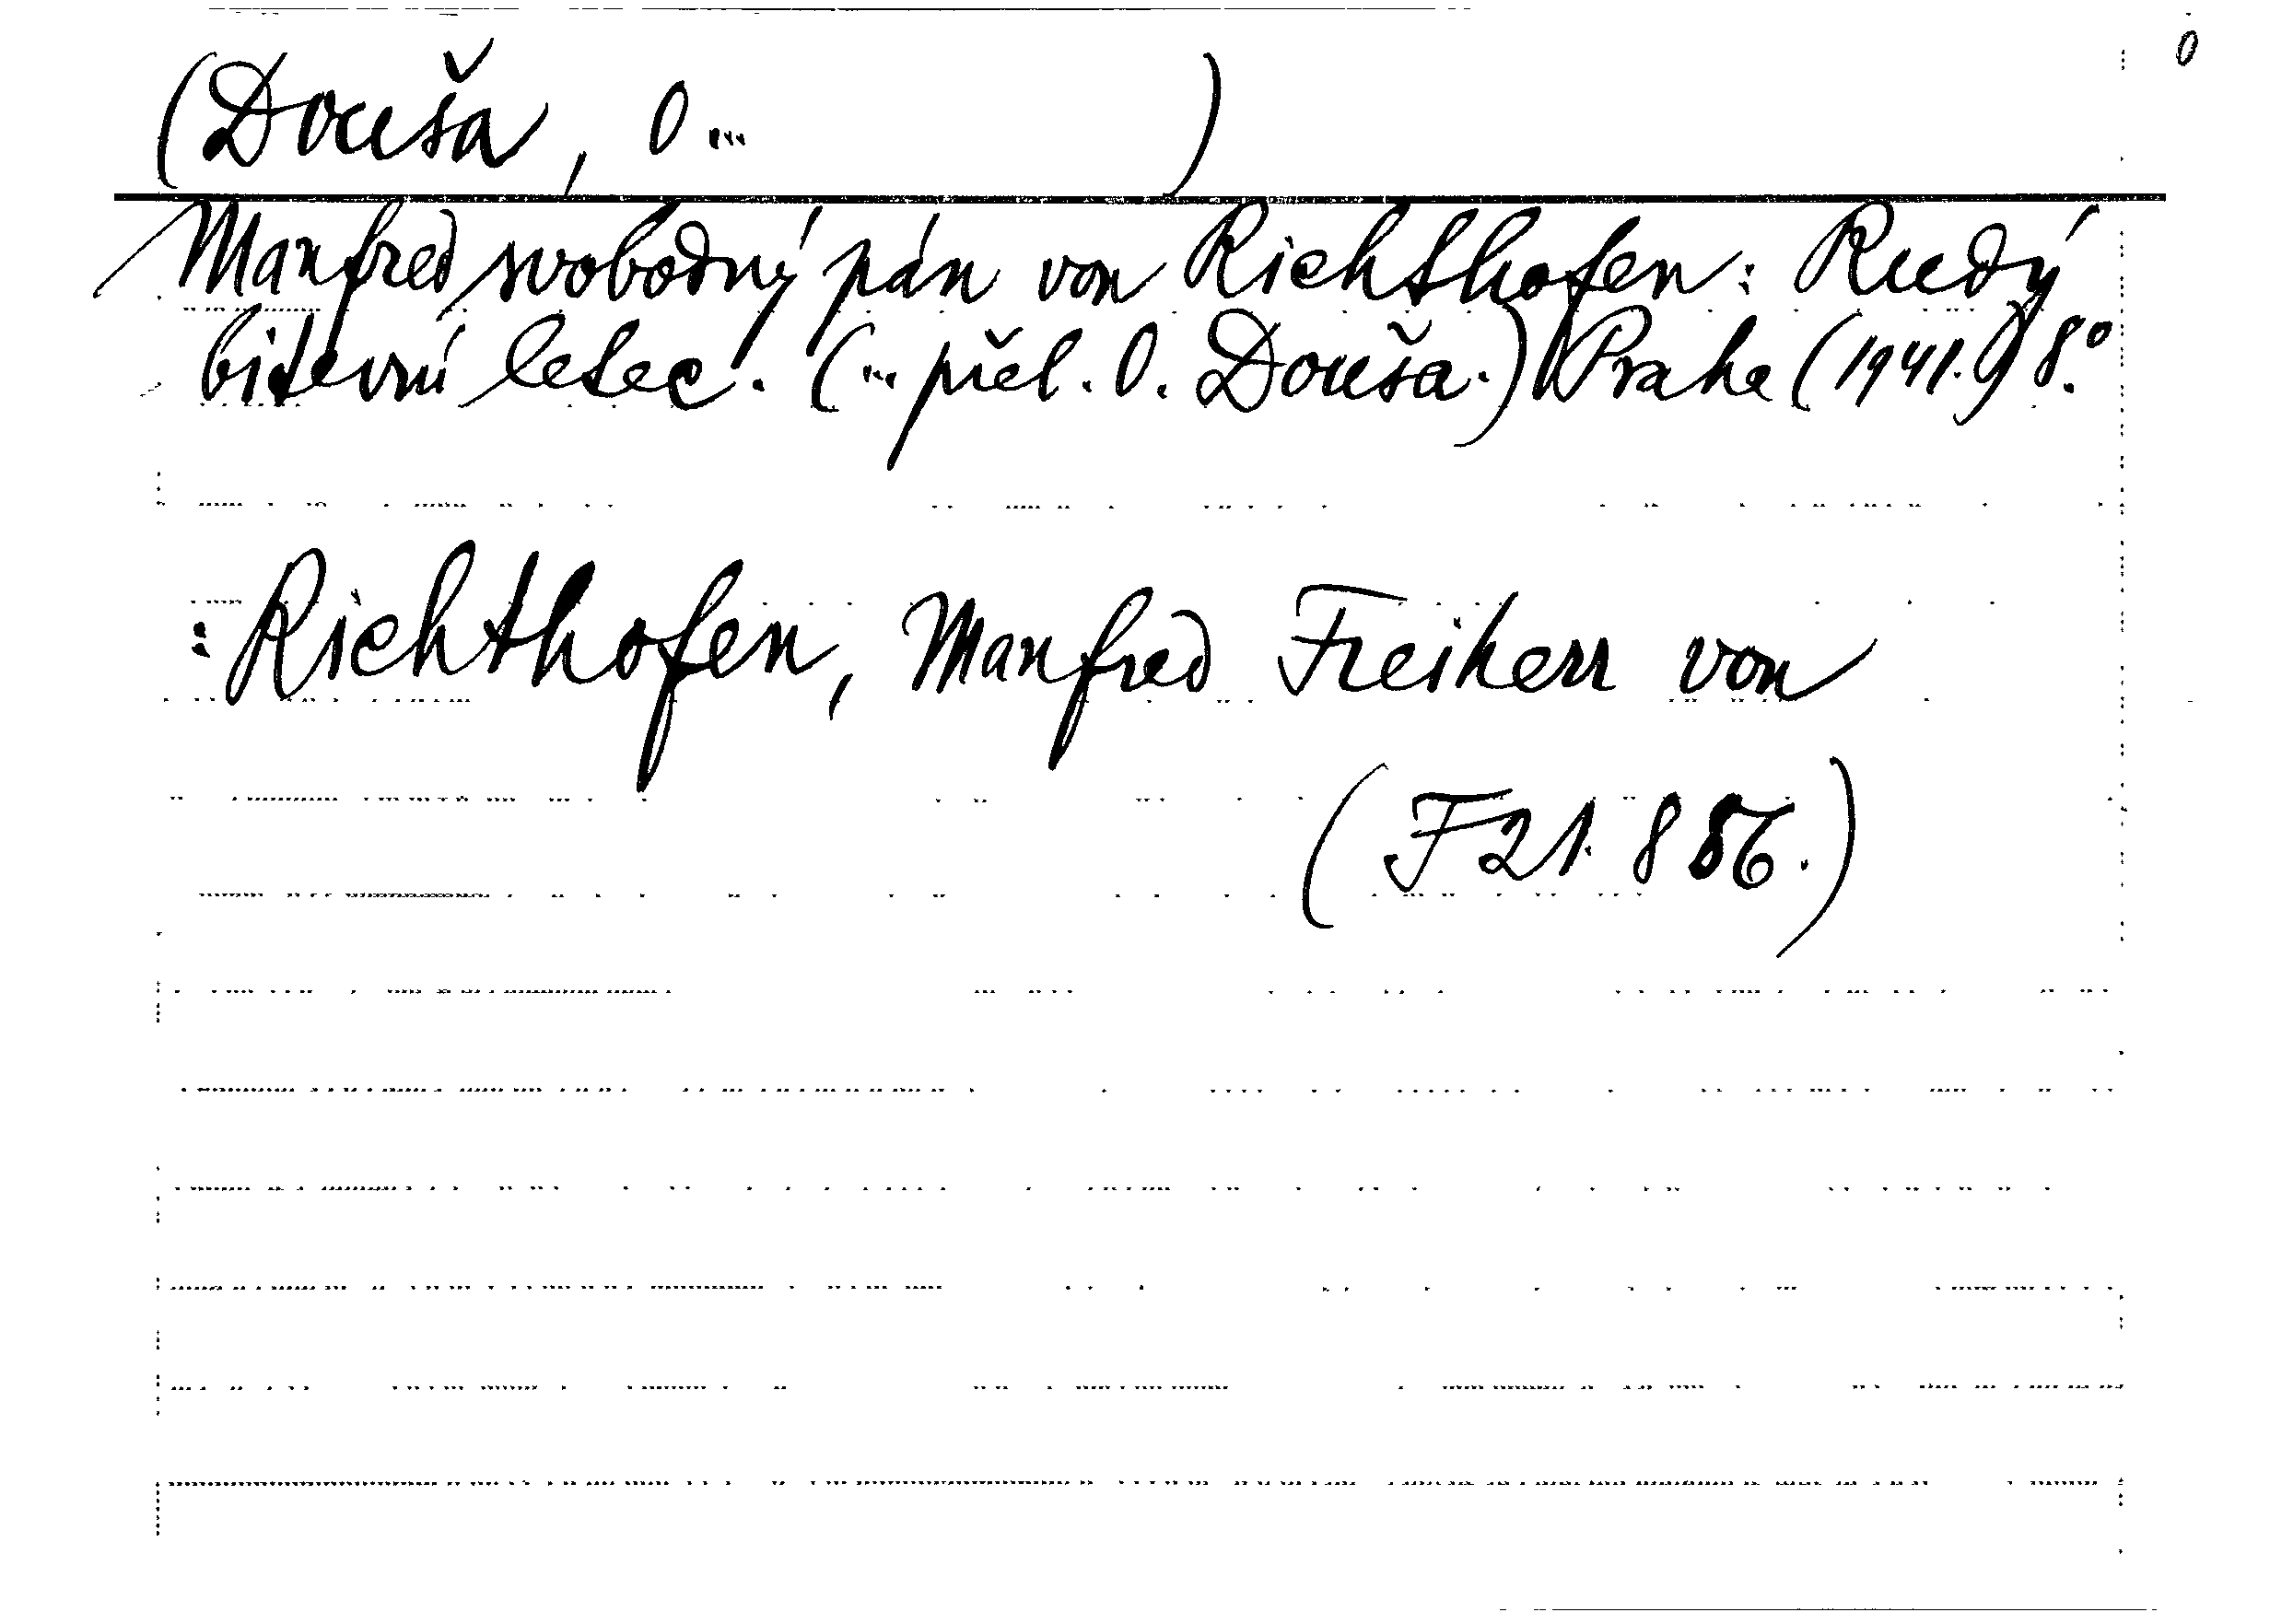 0
(Douša, O... )
Manfred svobodný pán von Richthofen: Rudý
bitevní letec. (... přel. O. Douša.) Praha (1941.) 8.°
: Richthofen, Manfred Freiherr von
(F 21.886.)